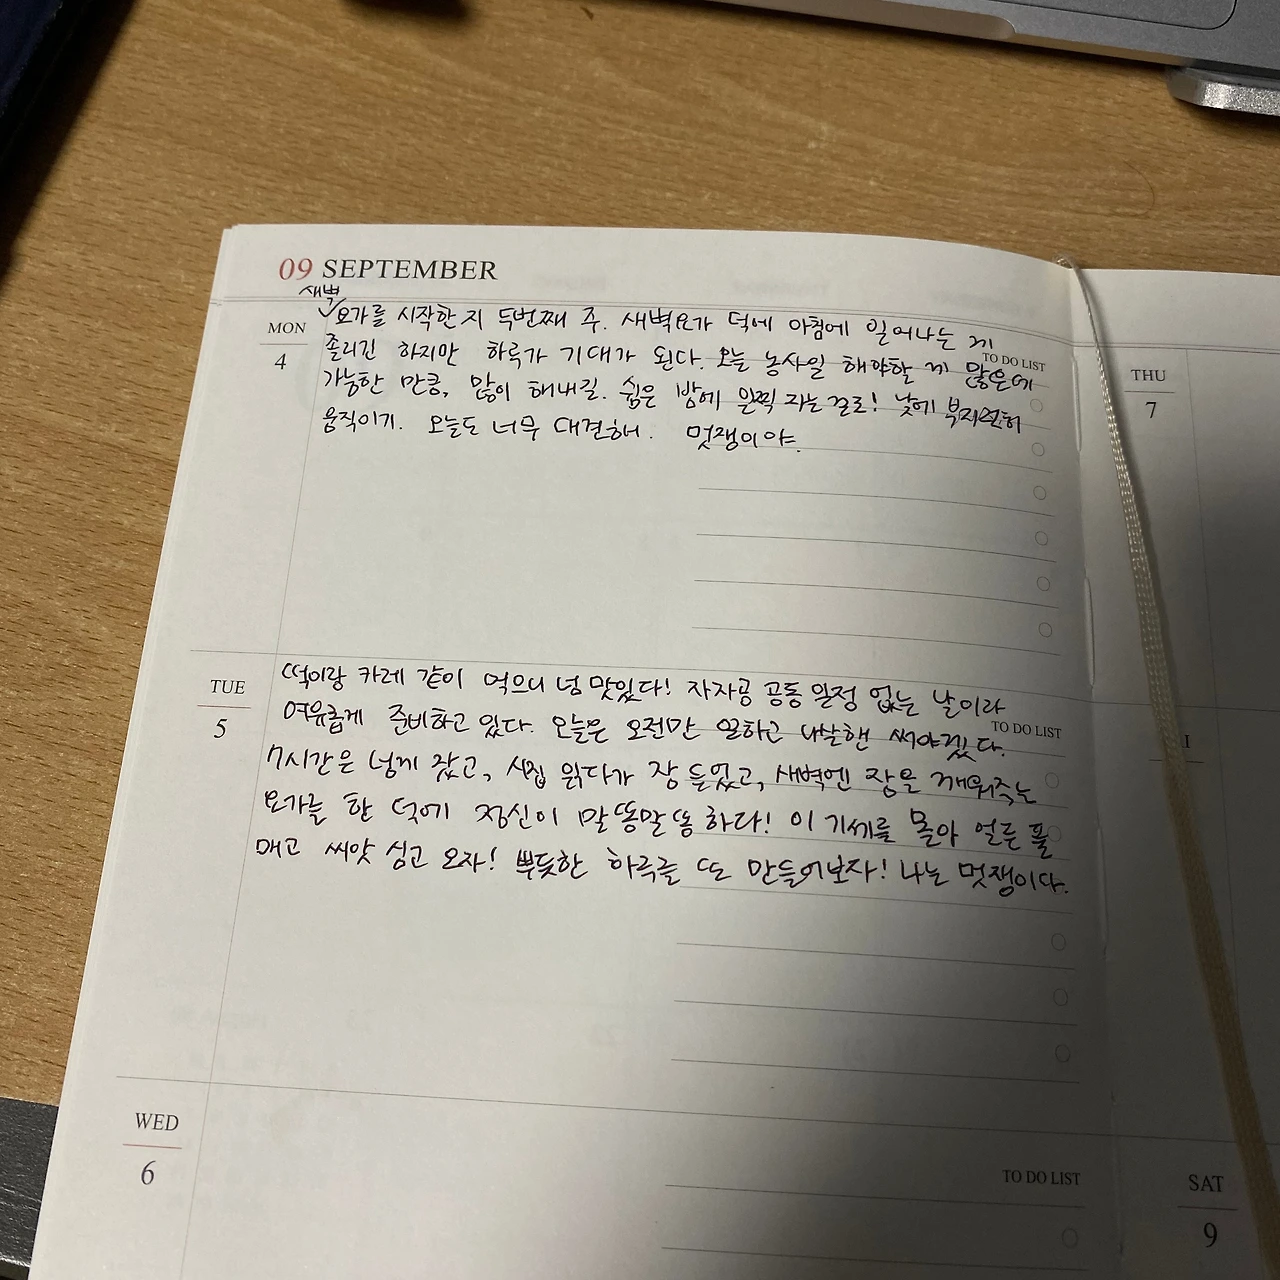 09 SEPTEMBER
새벽
MON
4
요가를 시작한지 두번째 주. 새벽요가 덕에 아침에 일어나는 게
졸리긴 하지만 하루가 기대가 된다. 오늘 농사일 해야할 게 많은데
가능한 만큼, 많이 해내길. 쉼은 밤에 일찍 자는걸로! 낮에 부지런히
움직이기. 오늘도 너무 대견해. 멋쟁이야.
TO DO LIST
TUE
5
떡이랑 카레 같이 먹으니 넘 맛있다! 자자공 공동 일정 없는 날이라
여유롭게 준비하고 있다. 오늘은 오전만 일하고 써야겠다.
7시간은 넘게 잤고, 시집 읽다가 잠 들었고, 새벽엔 잠을 깨워주는
요가를 한 덕에 정신이 말똥말똥하다! 이 기세를 몰아 얼른 풀
매고 씨앗 심고 오자! 뿌듯한 하루를 또 만들어보자! 나는 멋쟁이다.
TO DO LIST
WED
6
TO DO LIST
THU
7
SAT
9